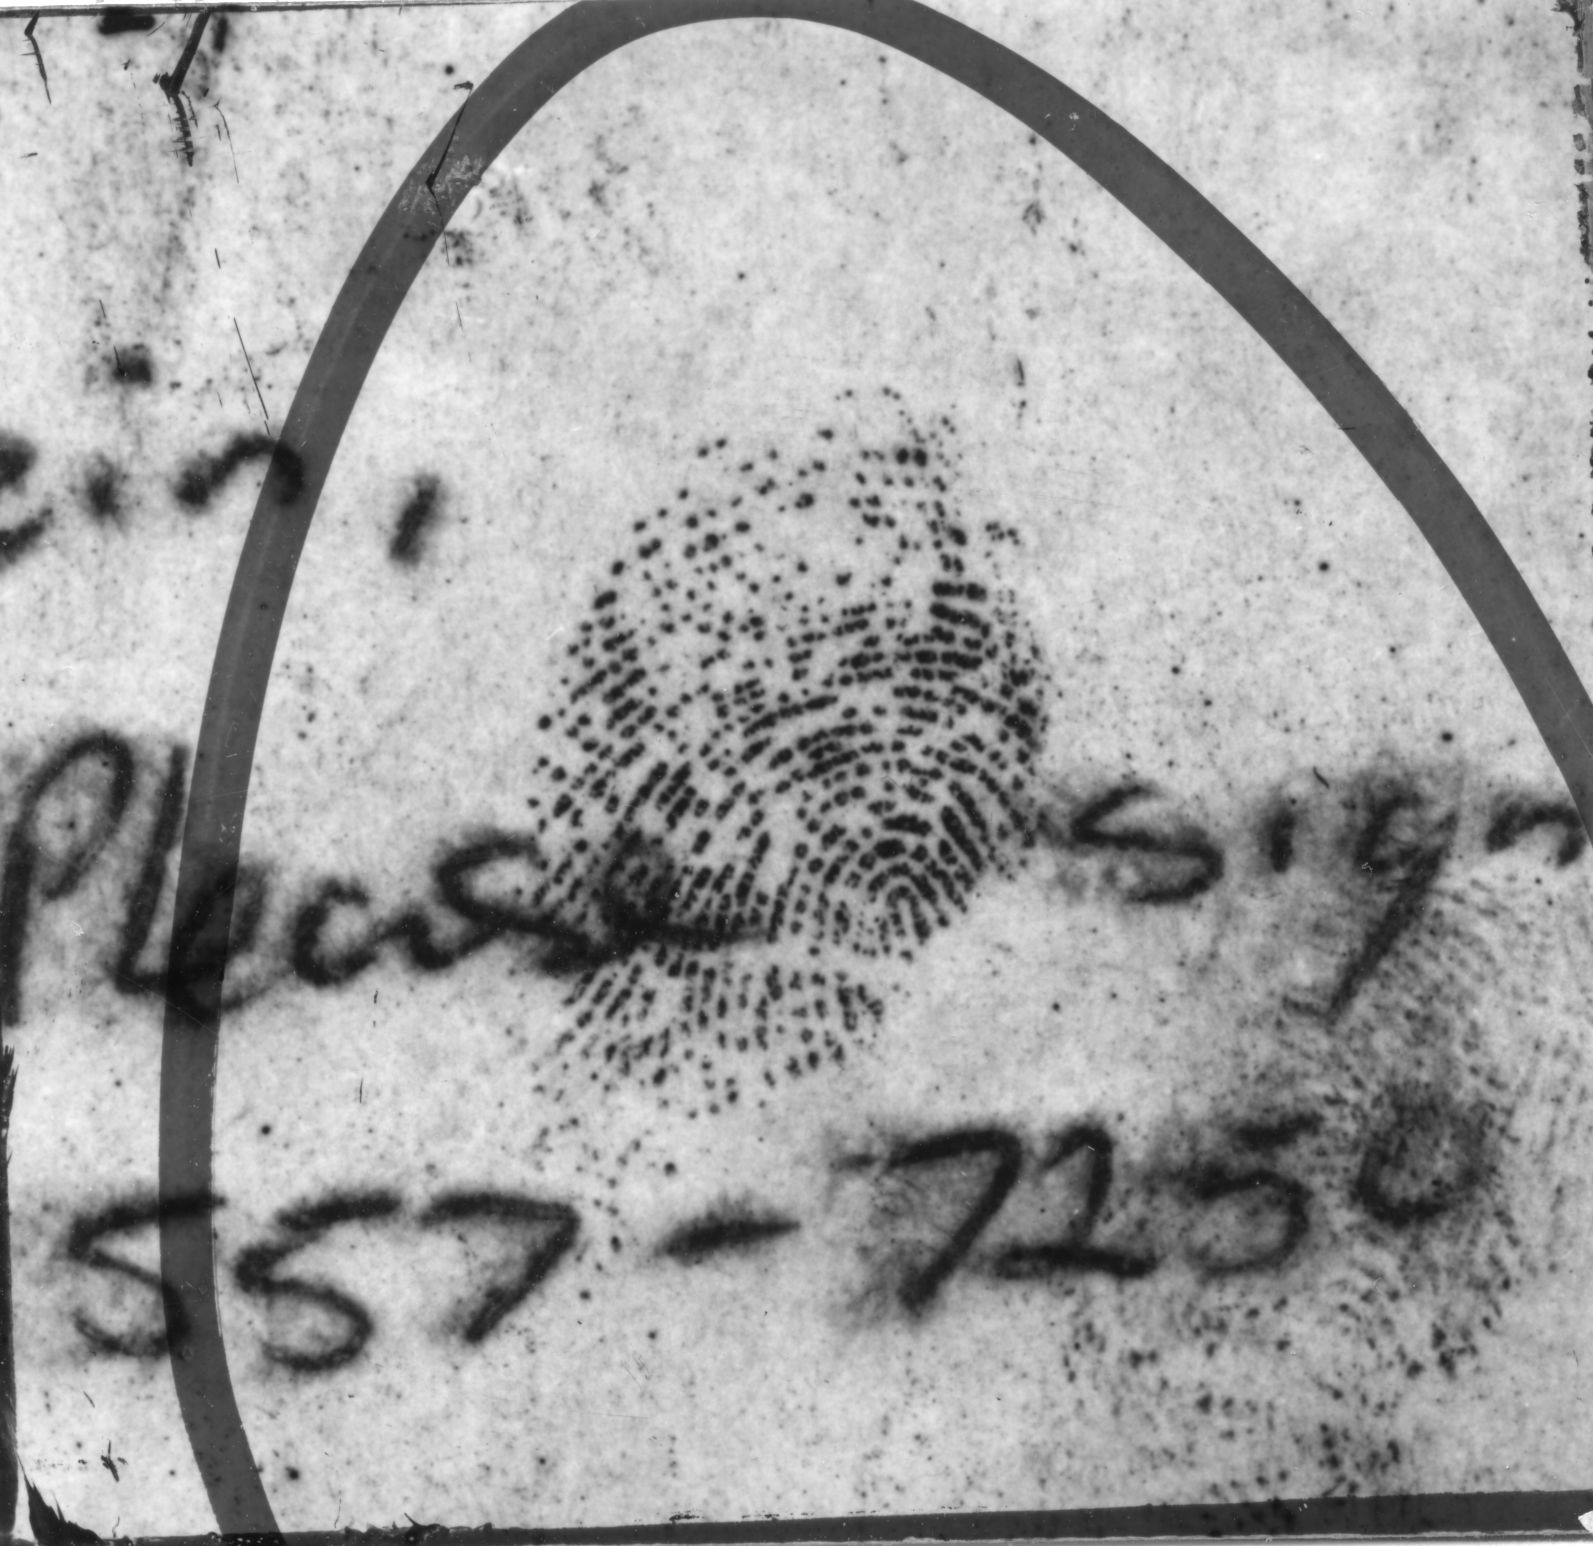 Please sign
557-7250